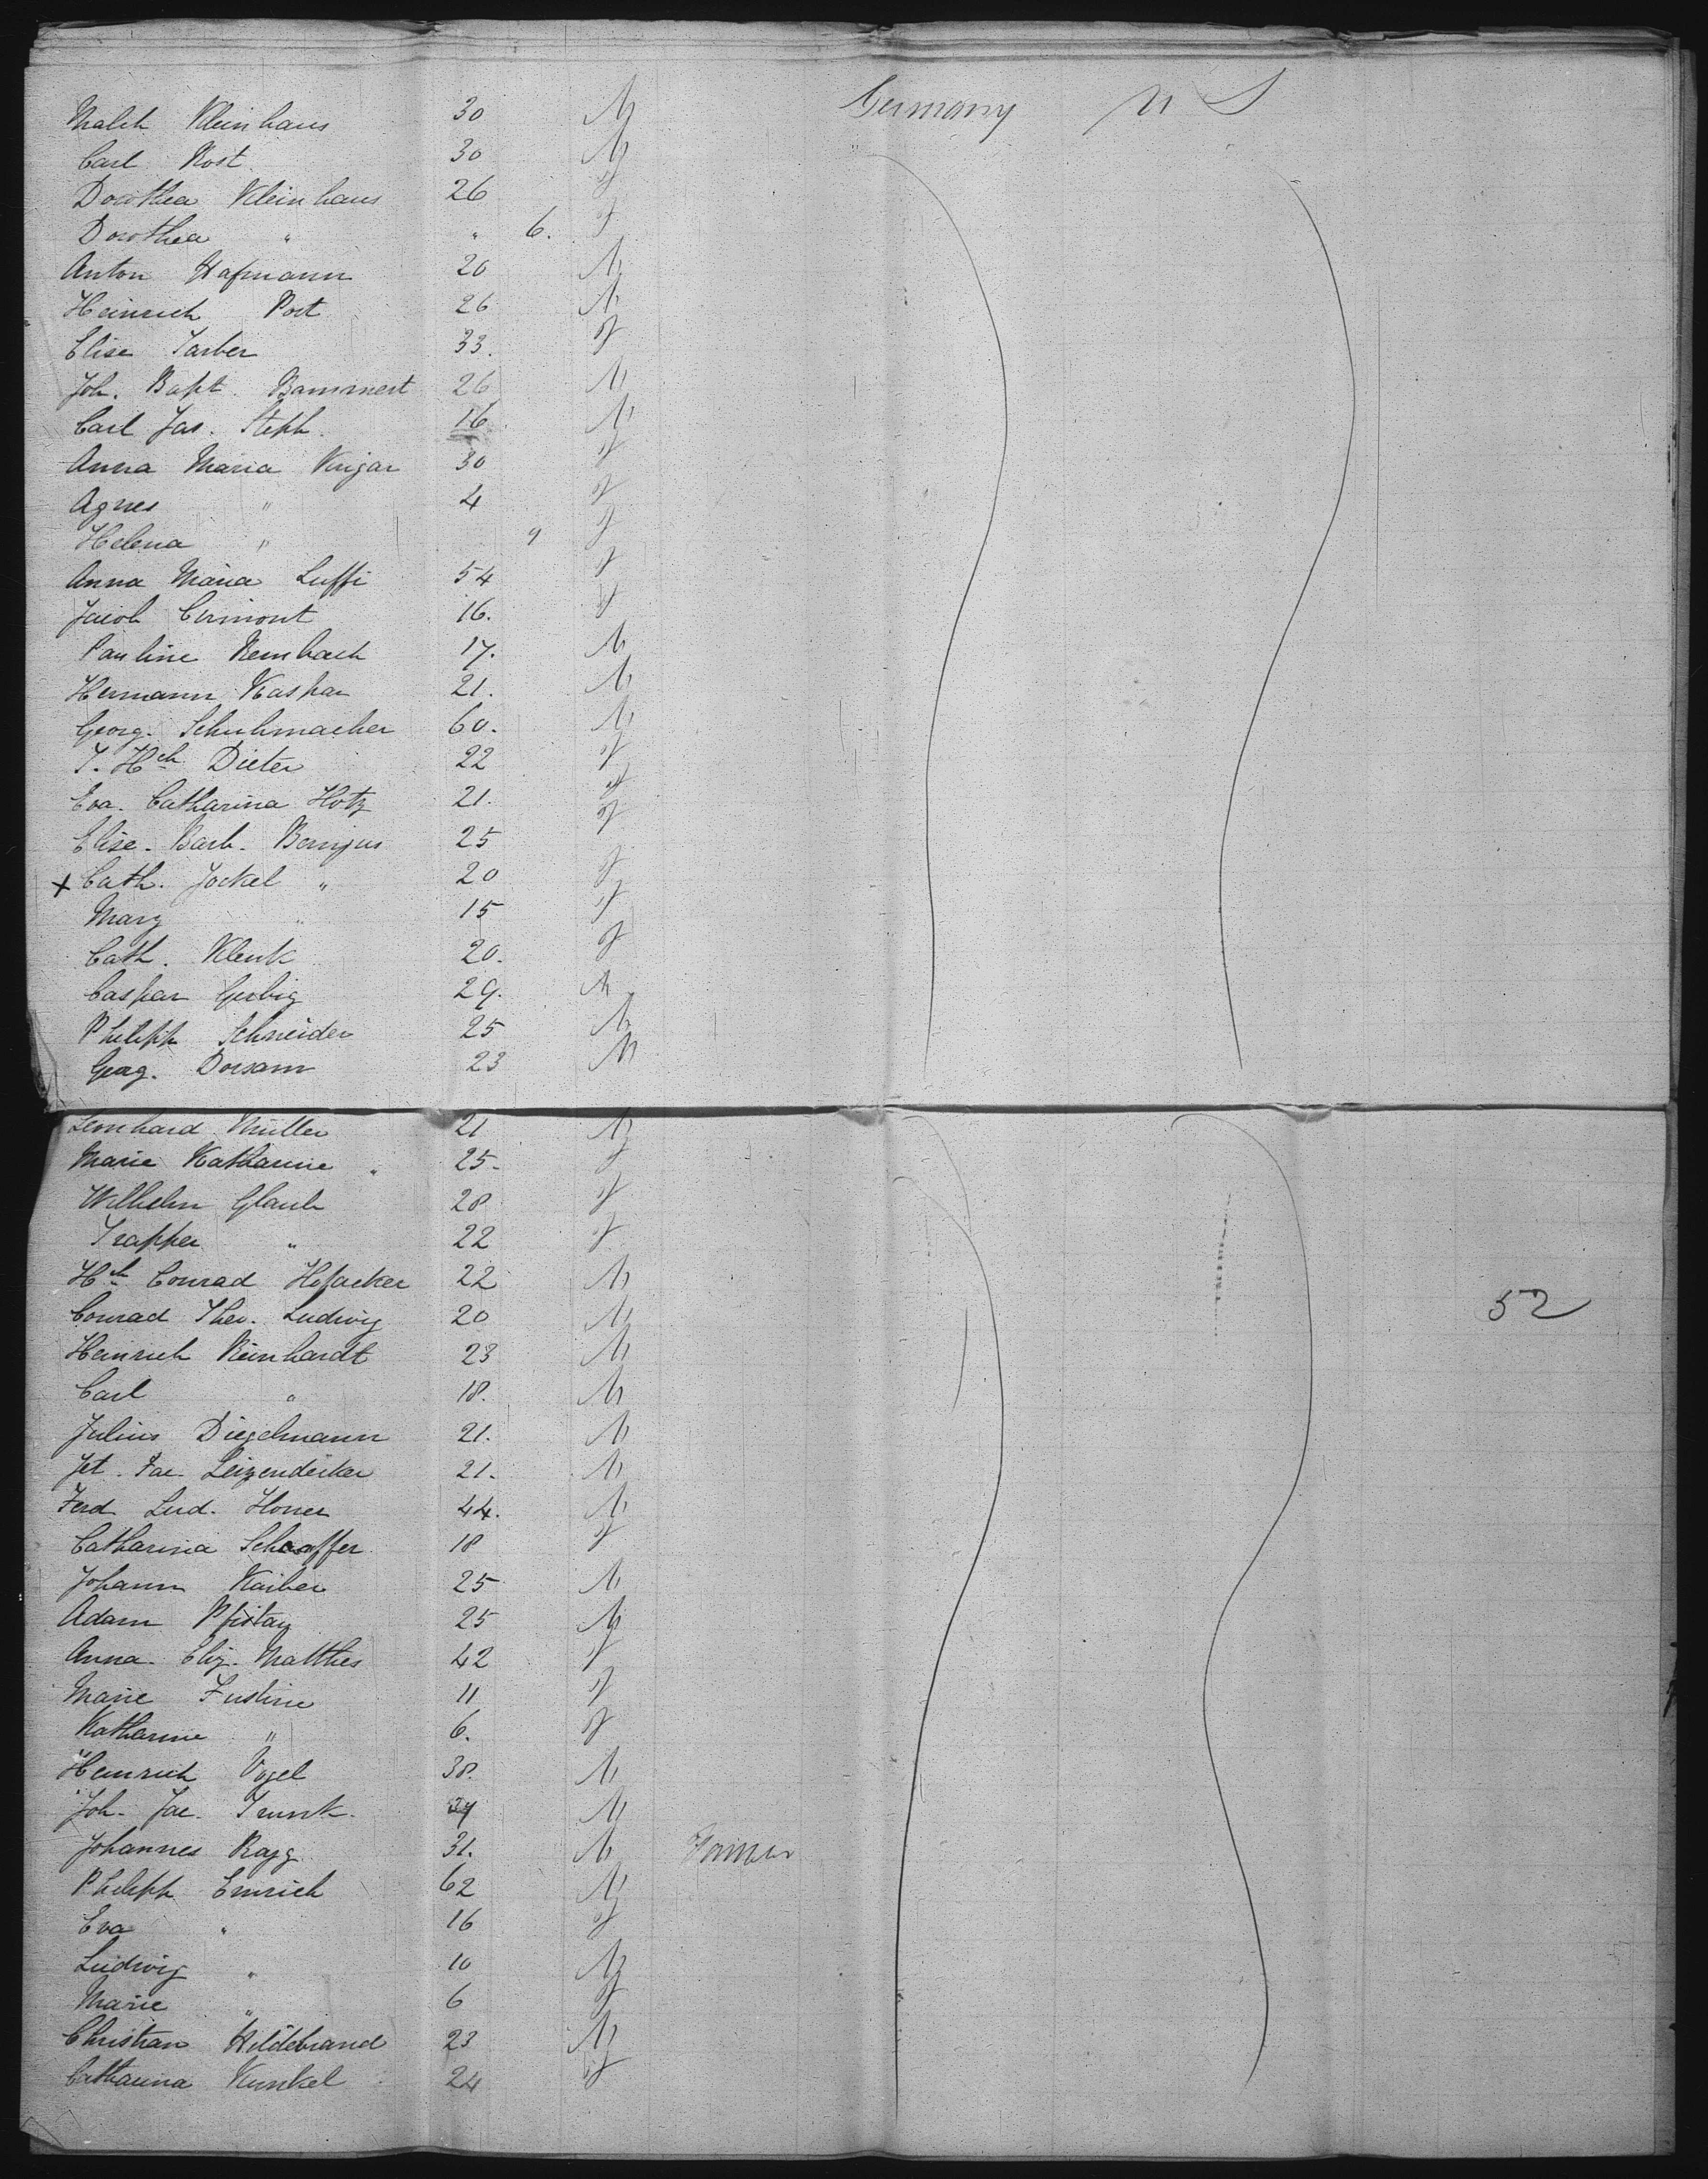 Malch Kleinhaus 30 M Germany U S
Carl Kost 30 M "
Dorothea Kleinhaus 26 f
Dorothea " " 6. f
Anton Hofmann 20 M
Heinrich Post 26 M
Elise Farber 33. f
Joh. Bapt. Bammert 26 M
Carl Jas. Steph. 16 M
Anna Maria Kugar 30 f
Agnes " 4 f
Helena " 9 f
Anna Maria Luffi 54 f
Jacob Cermont 16. f
Pauline Rembach 17. M
Hermann Kaspar 21. M
Georg. Schuhmacher 60. M
T. Hch Dieter 22 f
Eva. Catharina Hotz 21. f
Elise. Barb. Benijus 25 f
x Cath. Jockel " 20 f
Marg " 15 f
Cath. Klenk 20. f
Caspar Gerbig 29. M
Philipp Schneider 25 M
Georg. Dorsam 23 M
Leonhard Muller 21 M
Marie Katharine " 25. f
Wilhelm Glaub 28 f
Trapper " 22 f
Hch Conrad Hofacker 22 M
Conrad Theo. Ludwig 20 M 52
Heinrich Reinhardt 23 M
Carl " 18. M
Julius Diegelmann 21. M
Jac. Leizendecker 21. M
Ferd Lud. Honer 44. M
Catharina Schaaffer 18 f
Johann Kaiber 25 M
Adam Pfistay 25 M
Anna. Eliz. Matthes 42 f
Marie Justine 11 f
Katharine " 6. f
Heinrich Vogel 38. M
Joh. Jac. Trunk. M
Johannes Ragg 31. M Farmer
Philipp Emrich 62 M
Eva " 16 f
Ludwig " 10 M
Marie " 6 f
Christian Hildebrand 23 M
Catharina Kunkel 24 f